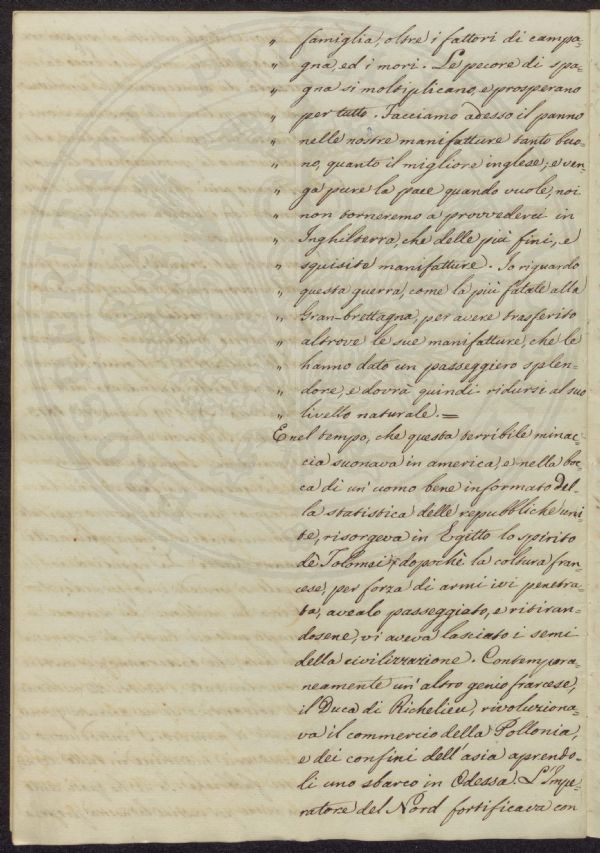 " famiglia, oltre i fattori di campa=
" gna, ed i mori. Le pecore di spa=
" gna si moltiplicano, e prosperano
" per tutto. Facciamo adesso il panno
" nelle nostre manifatture tanto buo=
" no, quanto il migliore inglese; e ven=
" ga pure la pace quando vuole, noi
" non torneremo a provvederci in
" Inghilterra, che delle più fini, e
" squisite manifatture. Io riguardo
" questa guerra, come la più fatale alla
" Gran-brettagna, per avere trasferito
" altrove le sue manifatture, che le
" hanno dato un passeggiero splen=
" dore, e dovrà quindi ridursi al suo
" livello naturale. =
E nel tempo, che questa terribile minac=
cia suonava in america, e nella boc=
ca di un' uomo bene informato del=
la statistica delle repubbliche uni=
te, risorgeva in Egitto lo spirito
de Tolomei, dopochè la coltura fran=
cese, per forza di armi ivi penetra=
ta, avealo passeggiato, e ritiran=
dosene, vi aveva lasciato i semi
della civilizzazione. Contempora=
neamente un' altro genio francese,
il Duca di Richelieu, rivoluziona=
va il commercio della Pollonia,
e dei confini dell' asia aprendo=
li uno sbarco in Odessa. L'Impe=
ratore del Nord fortificava con